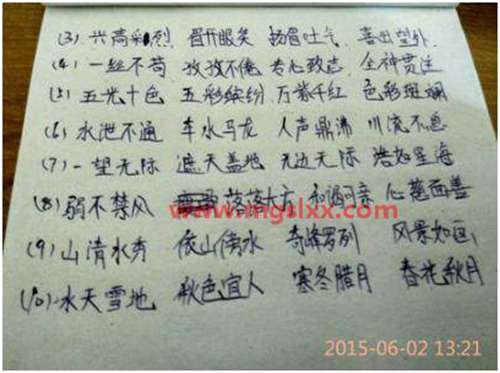 (3) 兴高彩烈 眉开眼笑 扬眉吐气 喜出望外
(4) 一丝不苟 孜孜不倦 专心致志 全神贯注
(5) 五光十色 五彩缤纷 万紫千红 色彩斑斓
(6) 水泄不通 车水马龙 人声鼎沸 川流不息
(7) 一望无际 遮天盖地 无边无际 浩如星海
(8) 弱不禁风 落落大方 可亲 心慈面善
www.mgslxx.com
(9) 山清水秀 依山傍水 奇峰罗列 风景如画
(10) 水天雪地 秋色宜人 寒冬腊月 春花秋月
2015-06-02 13:21